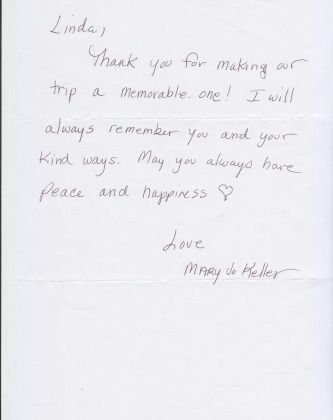 Linda,
Thank you for making our
trip a memorable one! I will
always remember you and your
Kind ways. May you always have
Peace and happiness ♡
Love
Mary Jo Keller